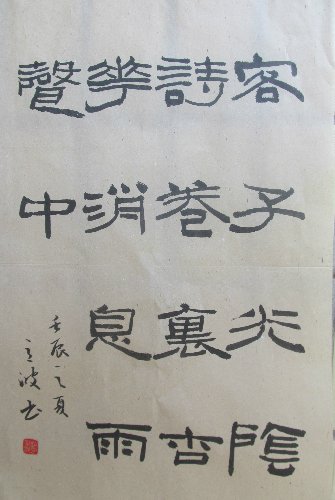 客子光陰
詩卷裏杏
花消息雨
聲中
壬辰之夏
立波书